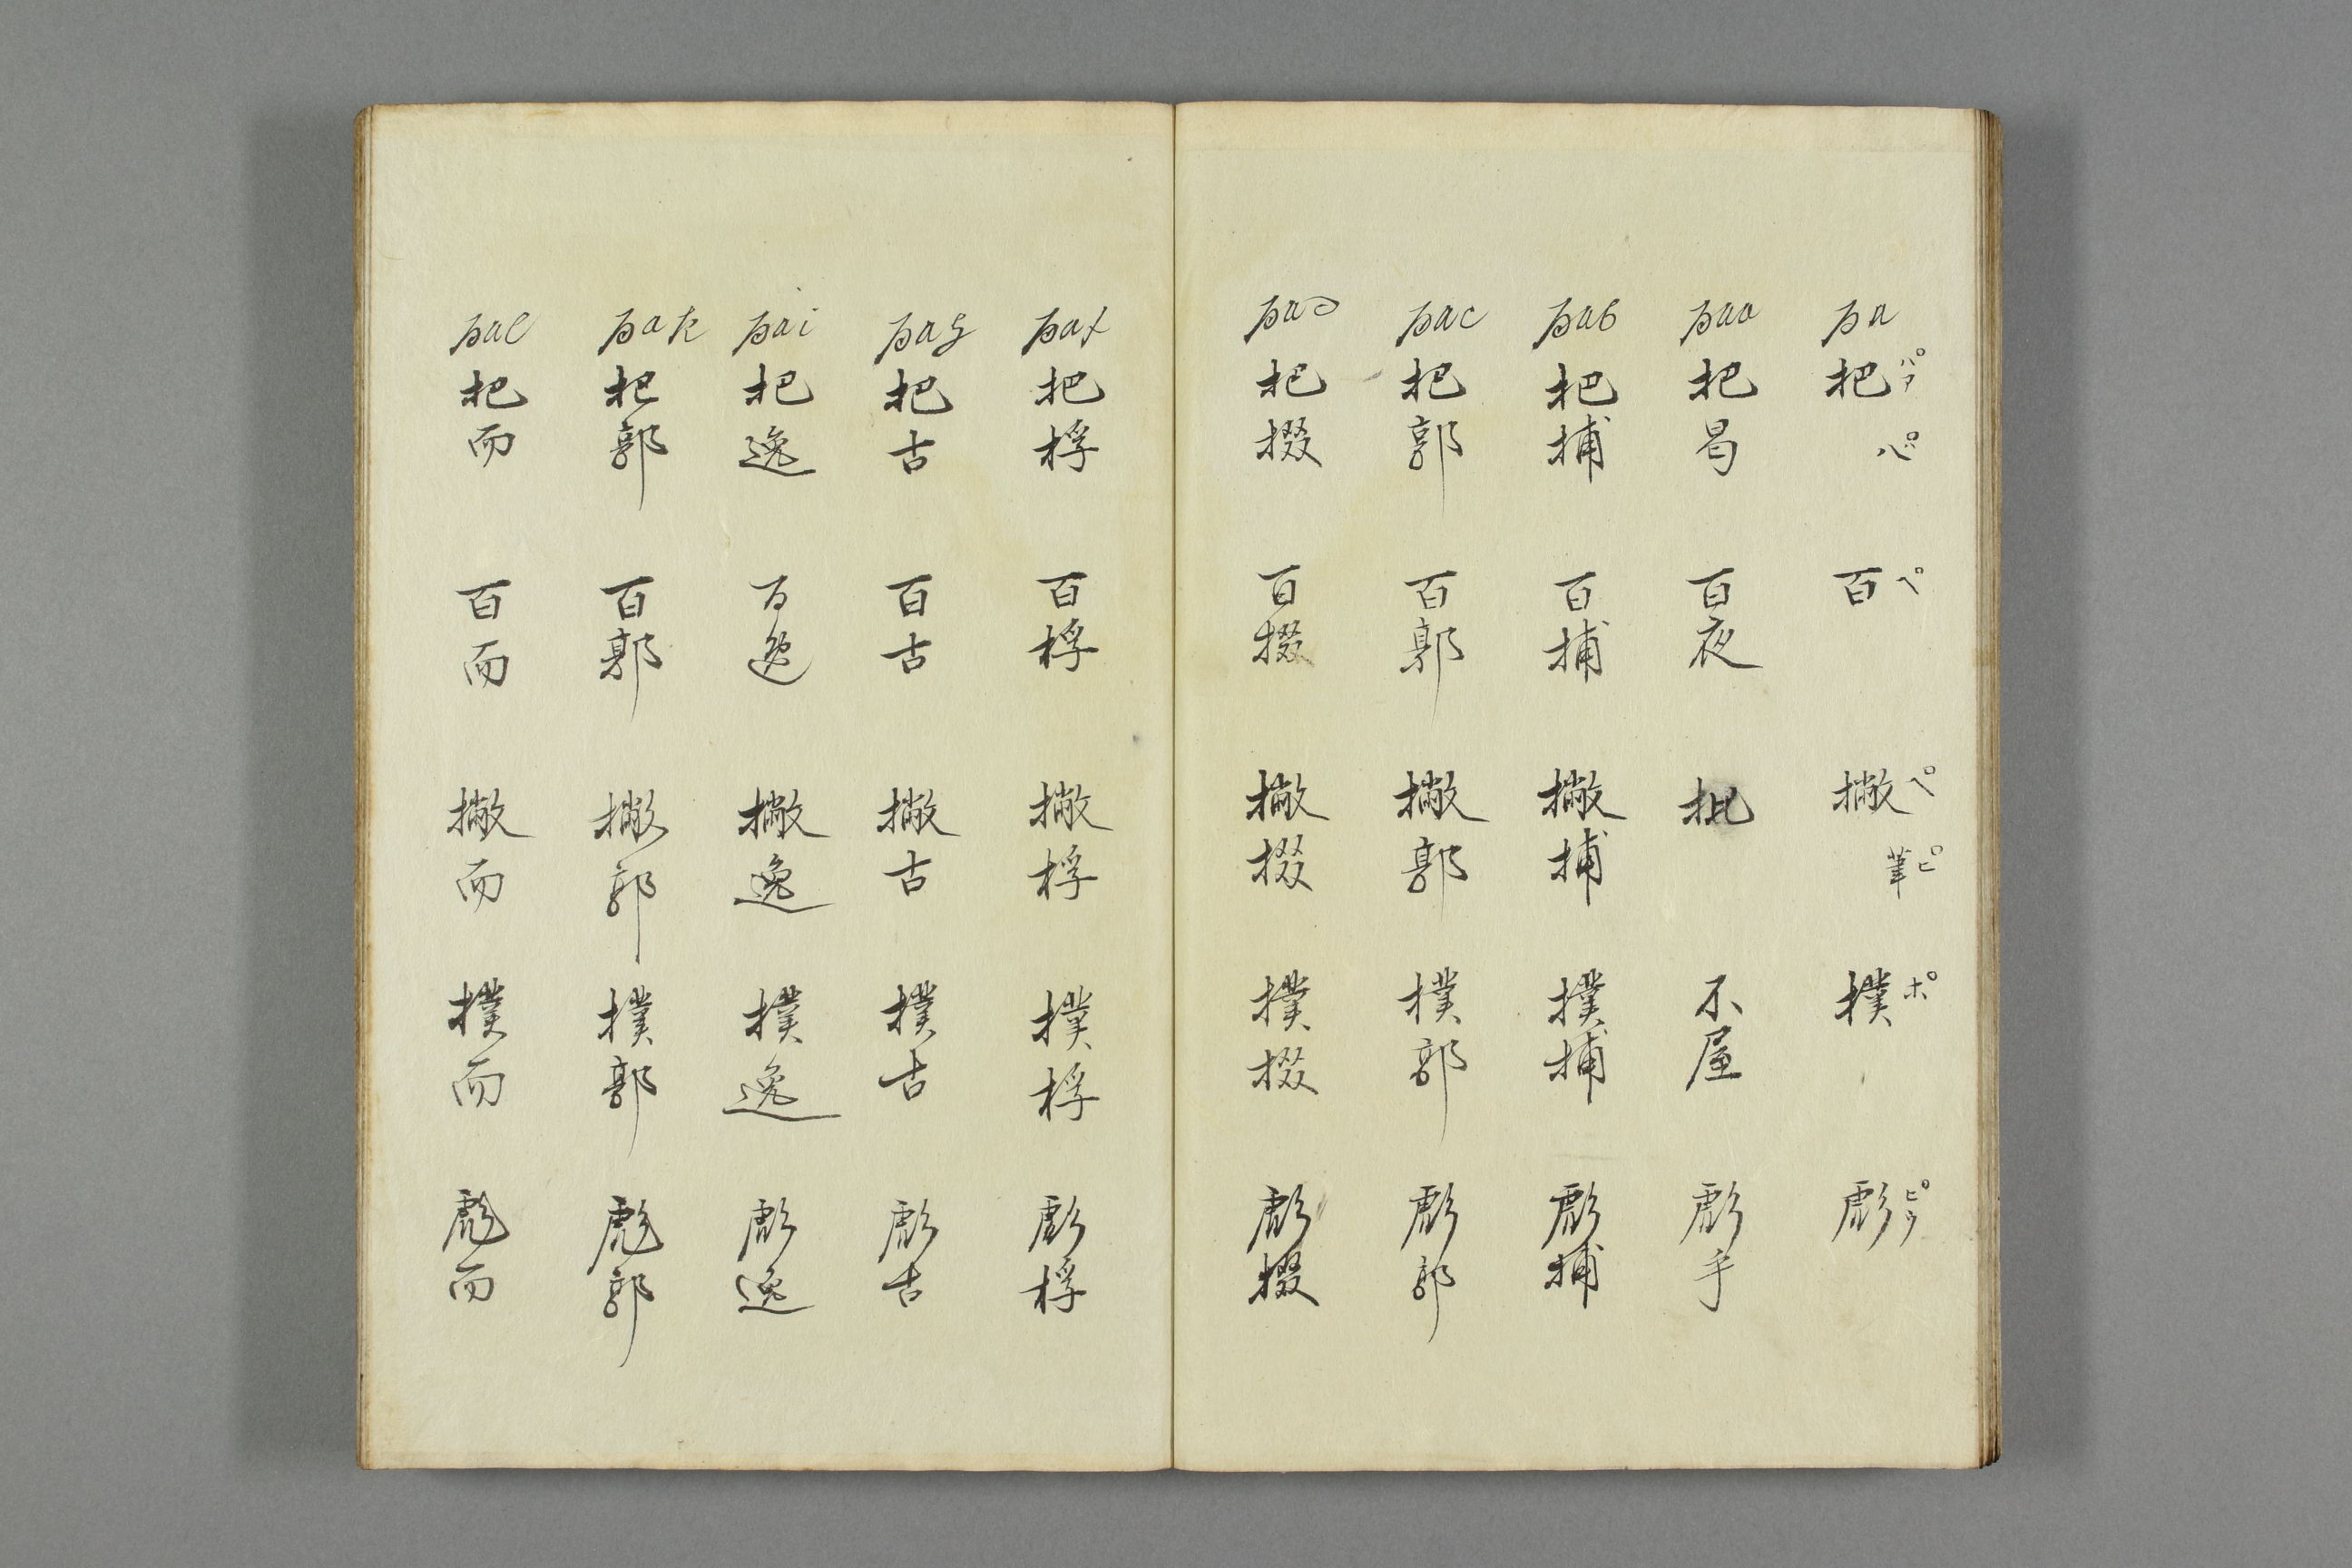 pa 把 パア 心゜ 百 ペ 撇 ペ 筆 ピ 撲 ポ 彪 ピウ
paa 把曷 百夜 批 不屋 彪手
pab 把捕 百捕 撇捕 撲捕 彪捕
pac 把郭 百郭 撇郭 撲郭 彪郭
pad 把掇 百掇 撇掇 撲掇 彪掇
paf 把桴 百桴 撇桴 撲桴 彪桴
pag 把古 百古 撇古 撲古 彪古
pai 把逸 百逸 撇逸 撲逸 彪逸
pak 把郭 百郭 撇郭 撲郭 彪郭
pal 把而 百而 撇而 撲而 彪而